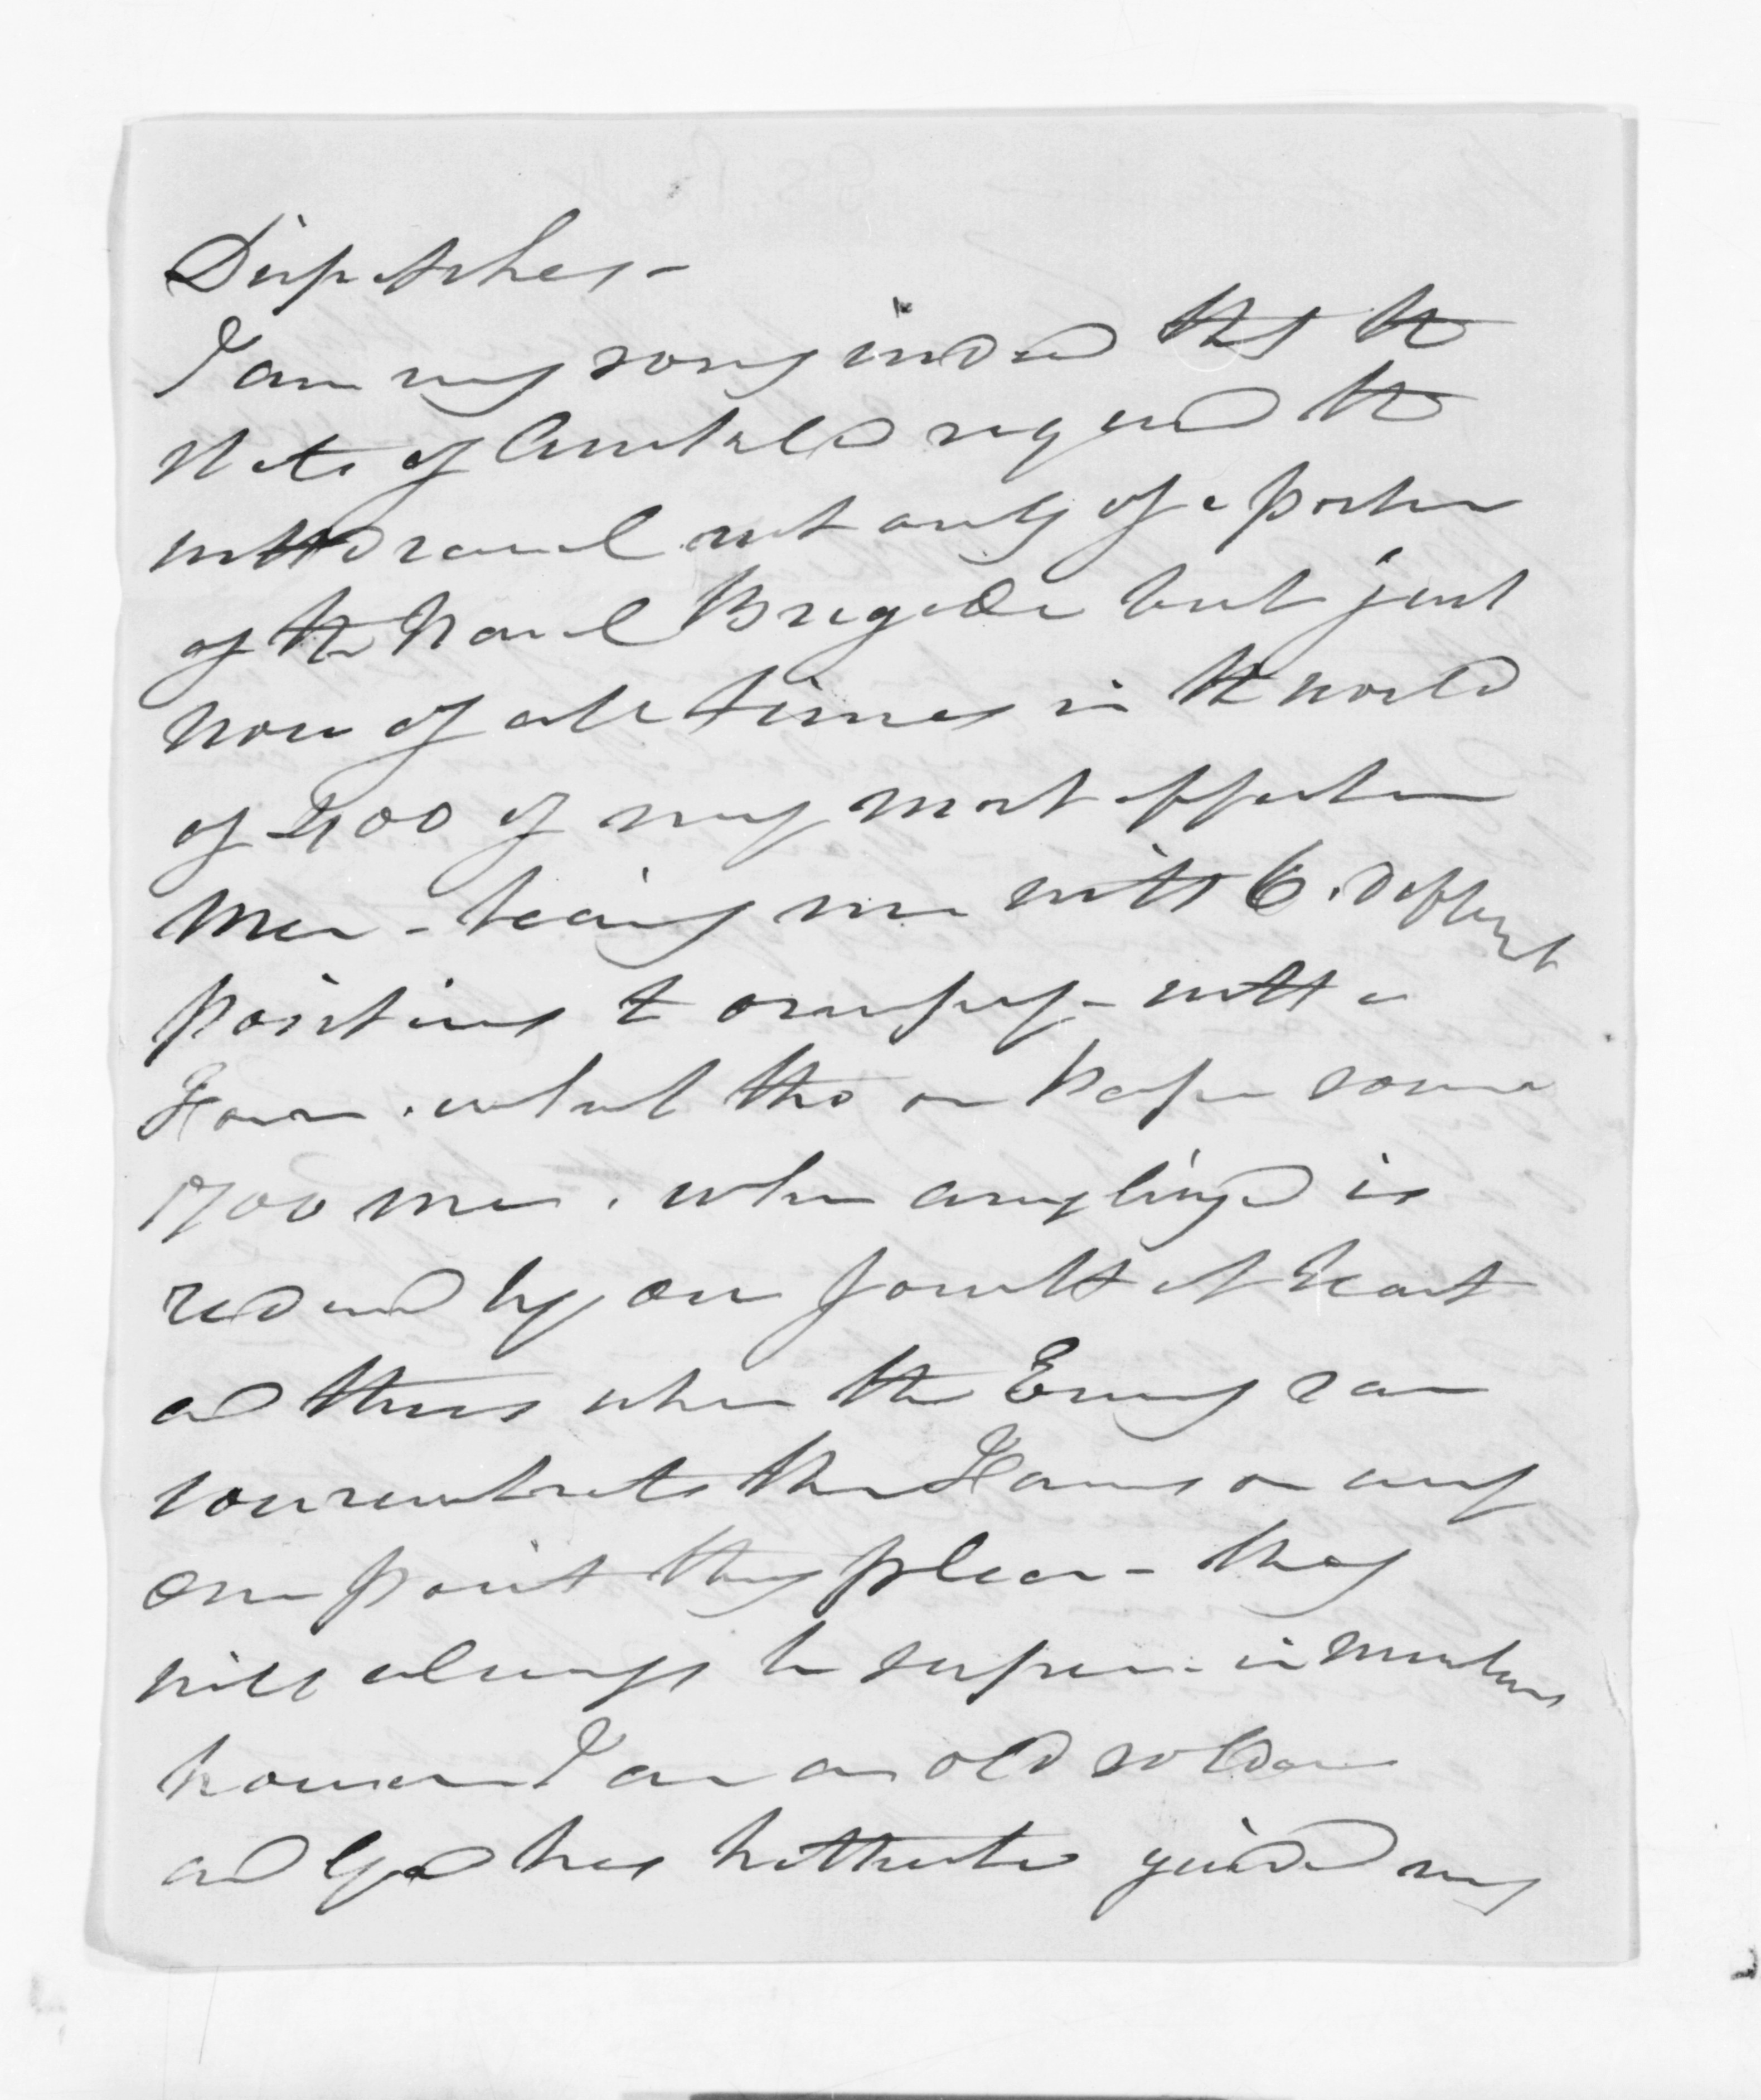 Dispatches -
I am very sorry indeed that the
State of Auckland required the
withdrawal not only of a portion
of the Naval Brigade but just
now of all times in the world
of 400 of my most effective
Men - leaving me with 6. different
positions to occupy - with a
Force . what tho on paper some
1700 men . when is
reduced by one fourth at least
and thus when the Enemy can
concentrate their Forces on any
one point they please - they
will always be superior in numbers
however I am an old soldier
and God has hitherto guided my